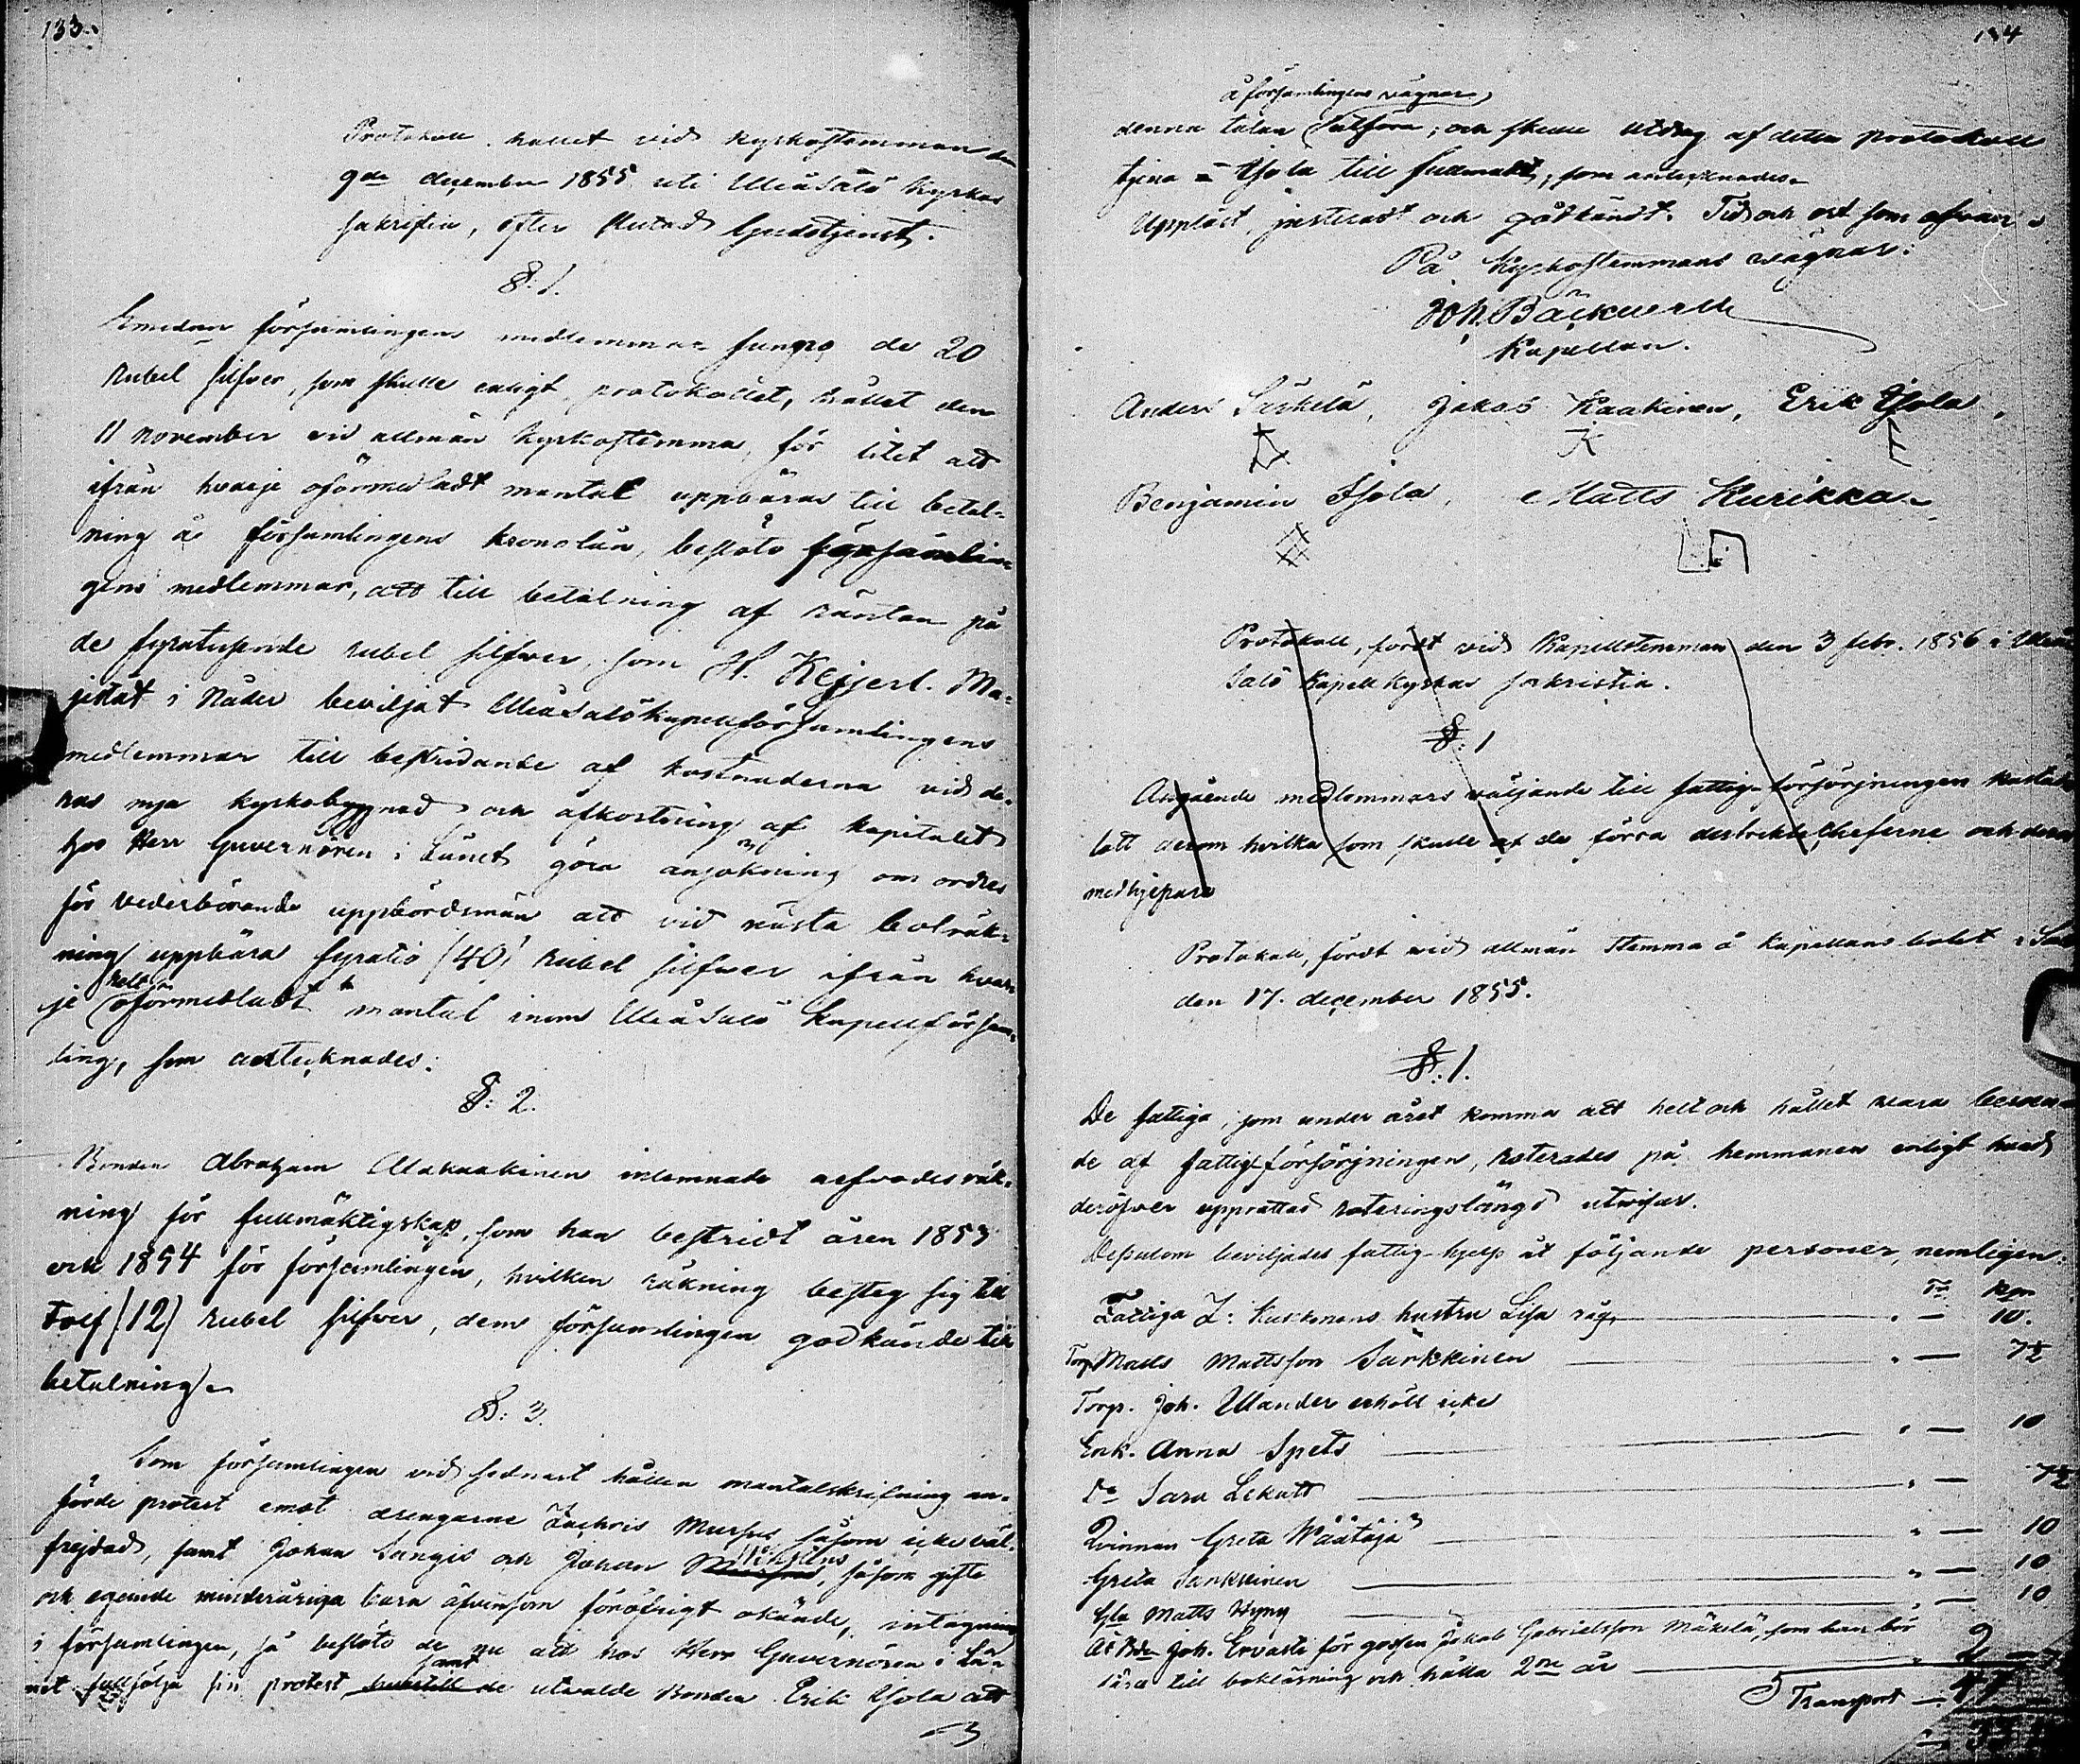 133.
Protokoll hållet vid kyrkostemman den
9de december 1855 uti Uleåsalo kyrkas
sakristia, efter slutad Gudstjenst.
§. 1.
Emedan församlingens medlemmar funno de 20
rubel silfver, som skulle enligt protokollet, hållet den
11 november vid allmän kyrkostemma, för litet att
ifrån hvarje oförmedladt mantal uppbäras till betal-
ning å församlingens kronolån, beslöto församlin-
gens medlemmar, att till betalning af räntan på
de fyratusende rubel silfver, som H. Kejserl. Ma-
jestät i Nåder beviljat Uleåsalo kapellförsamlingens
medlemmar till bestridande af kostnaderna vid de-
ras nya kyrkobyggnad och afkortning af kapitalet
hos Herr Guvernören i Länet göra ansökning om ordres
för vederbörande uppbördsmän att vid nästa bolräk-
ning uppbära fyratio (40) rubel silfver ifrån hvar-
je helt oförmedladt mantal inom Uleåsalo kapellförsam-
ling, som antecknades.
§. 2.
Bonden Abraham Alakaakinen inlemnade arfvodesräk-
ning för fullmäktigskap, som han bestridt åren 1853
och 1854 för församlingen, hvilken räkning besteg sig till
tolf (12) rubel silfver, dem församlingen godkände till
betalning.
§. 3.
Som församlingen vid sednast hållen mantalskrifning an-
förde protest emot drengarne Zachris Mursus såsom icke väl-
frejdad, samt Johan Sangis och Johan , såsom gifte
och egande minderåriga barn äfvensom föröfrigt okände, intagning
i församlingen, så beslöto de nu att hos Herr Guvernören i Lä-
net fullfölja sin protest samt de utvalde Bonden Erik Ysola att
134
å församlingens vägnar
denna talan utföra, och skulle utdrag af detta protokoll
tjena Ysola till fullmakt, som antecknades.
Uppläst, justeradt och godkändt. Tid och ort som ofvan.
På kyrkostemmans vägnar:
Joh. Bäckvall
Kapellan.
Anders Särkelä, Jakob Kaakinen, Erik Ysola,
K E
Benjamin Isola, Matts Kurikka.
Protokoll, fördt vid Kapellstemman den 3 febr. 1856 i Uleå
salo Kapellkyrkas sakristia.
§. 1
Angående medlemmars väljande till fattig-försörjningen
lott derom hvilka som skulle af de förra destriktscheferne och deras
medhjepare
Protokoll, fördt vid allmän stemma å Kapellans bolet i
den 17. december 1855.
§. 1.
De fattiga, som under året komma att helt och hållet vara beroen-
de af fattigförsörjningen, roterades på hemmanen enligt hvad
deröfver upprättad roteringslängd utvisar.
Dessutom beviljades fattig-hjelp åt följande personer, nemligen:
T:r K:pr
Fattiga Z: Kurkmans hustru Lisa råg " — 10.
Torp. Matts Mattsson Särkkinen " — 7½
Torp. Joh. Ulander erhöll icke
Enk. Anna Spets " — 10
D:o Sara Lekatt " — 7½
Qvinnan Greta Wäätäjä " — 10
Greta Sarkkinen " — 10
Gla Matts Hyry " — 10
At Joh. Ervasti för gossen Jakob Gabrielsson Mäkelä, som han bör
lära till bokläsning och hålla 2ne år 2 —
Transport